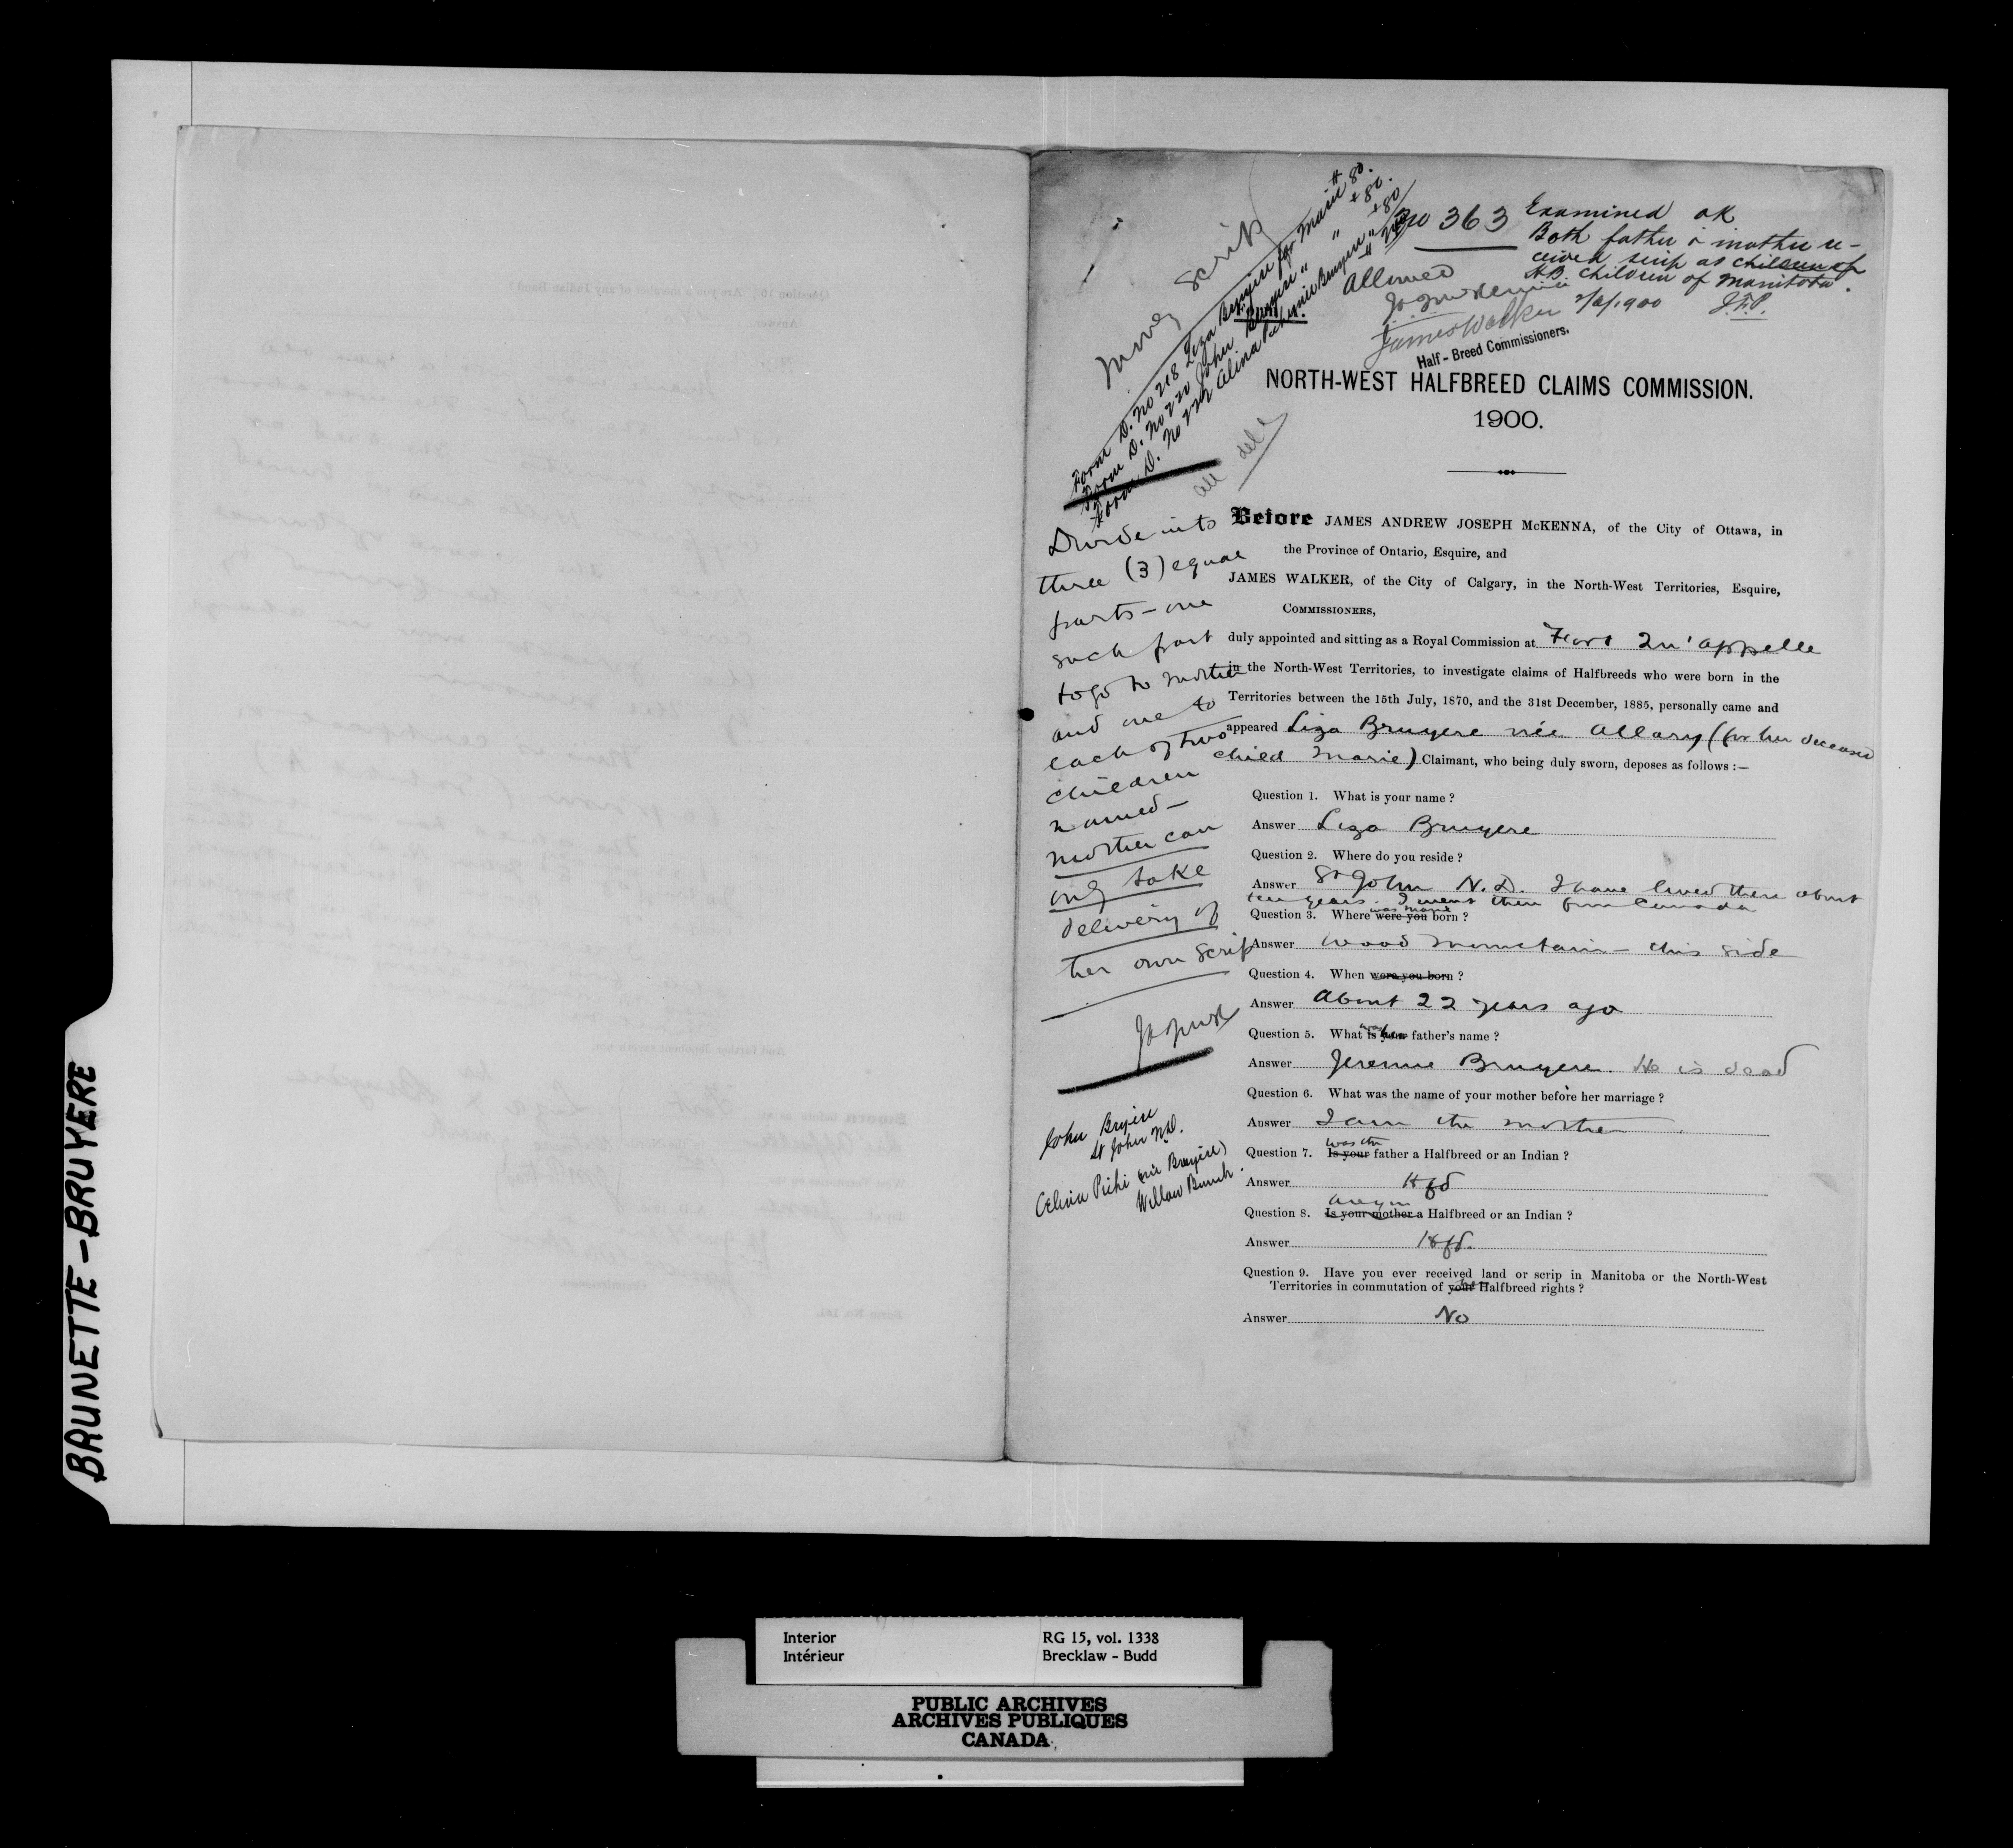 BRUNETTE-BRUYERE
Money scrip
Form D. No 218 Liza Bruyere for Marie $80.
Form D. No 220 John Bruyere " " $80.
Form D. No 222 Alina Bruyere " " $80
all del
No 363
Allowed
James Walker
Half-Breed Commissioners.
Examined ok
Both father & mother re-
ceived scrip as children of
H.B. children of Manitoba.
1900 J.F.P.
NORTH-WEST HALFBREED CLAIMS COMMISSION.
1900.
Before JAMES ANDREW JOSEPH McKENNA, of the City of Ottawa, in
the Province of Ontario, Esquire, and
JAMES WALKER, of the City of Calgary, in the North-West Territories, Esquire,
COMMISSIONERS,
duly appointed and sitting as a Royal Commission at Fort Qu'appelle
in the North-West Territories, to investigate claims of Halfbreeds who were born in the
Territories between the 15th July, 1870, and the 31st December, 1885, personally came and
appeared Liza Bruyere née Allary (for her deceased
child Marie) Claimant, who being duly sworn, deposes as follows :—
Question 1. What is your name ?
Answer Liza Bruyere
Question 2. Where do you reside ?
Answer St John N.D. I have lived there about
ten years. I went there from Canada
Question 3. Where was Marie were you born ?
Answer Wood Mountain - this side
Question 4. When were you born ?
Answer About 22 years ago
Question 5. What is your father's name ?
Answer Jeremie Bruyere. He is dead
Question 6. What was the name of your mother before her marriage ?
Answer I am the mother
Question 7. was the Is your father a Halfbreed or an Indian ?
Answer Hfd
Question 8. are you Is your mother a Halfbreed or an Indian ?
Answer Hfd.
Question 9. Have you ever received land or scrip in Manitoba or the North-West
Territories in commutation of your Halfbreed rights ?
Answer No
Divide into
three (3) equal
parts - one
such part
to go to mother
and one to
each of two
children
named -
mother can
only take
delivery of
her own scrip
John Bruyere
St John N.D.
(née Bruyère)
Willow Bunch.
Interior
Intérieur
RG 15, vol. 1338
Brecklaw - Budd
PUBLIC ARCHIVES
ARCHIVES PUBLIQUES
CANADA